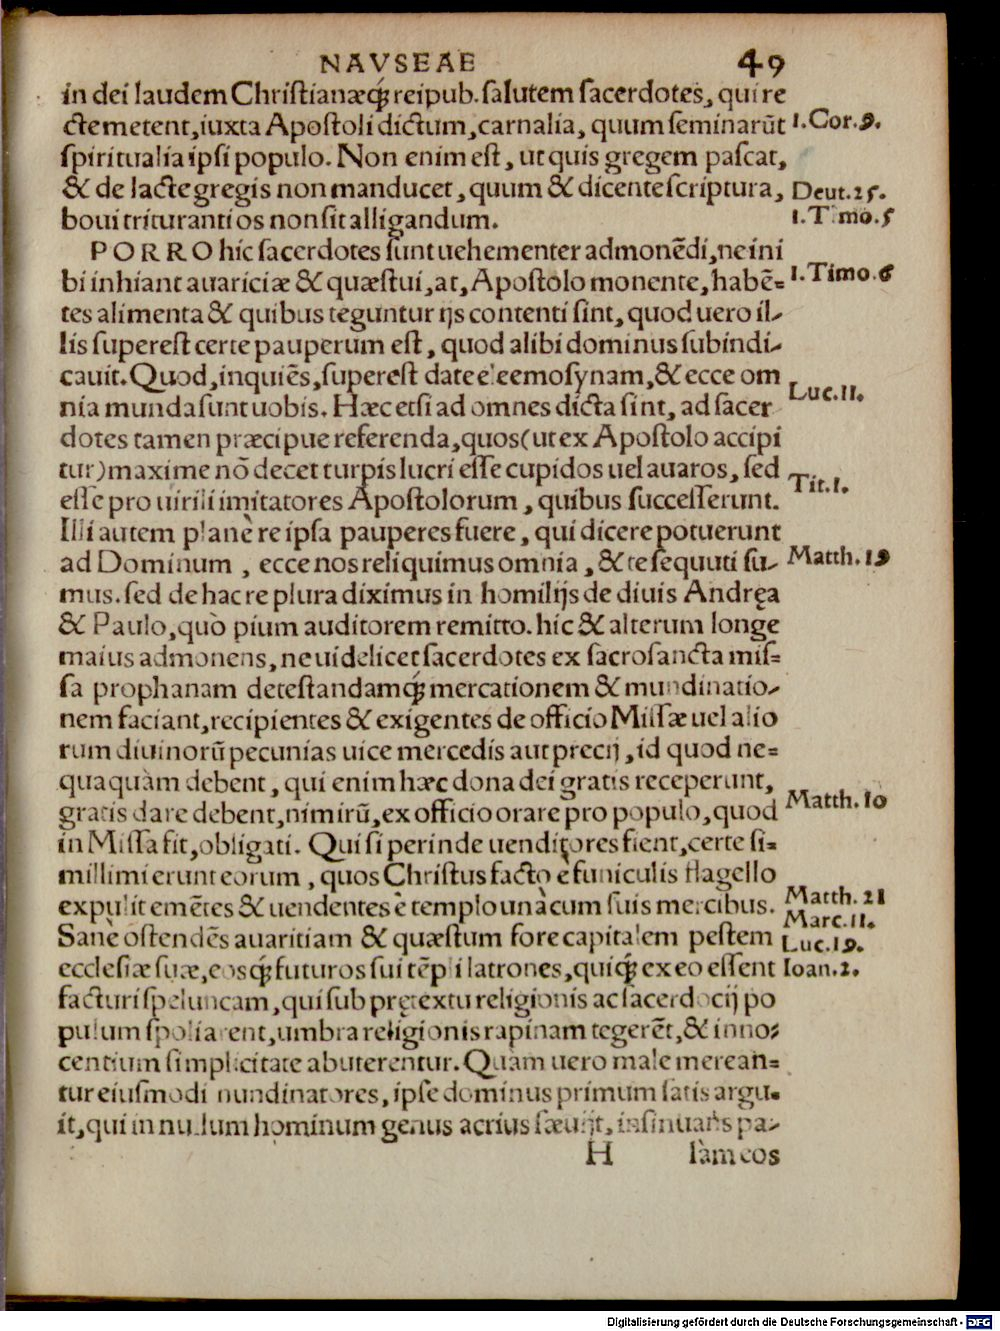 NAVSEAE 49
in dei laudem Christianæq́ȝ reipub. salutem sacerdotes, qui re
cte metent, iuxta Apostoli dictum, carnalia, quum seminarūt
1.Cor.9.
spiritualia ipsi populo. Non enim est, ut quis gregem pascat,
& de lacte gregis non manducet, quum & dicente scriptura,
Deut.25.
boui trituranti os non sit alligandum.
1.Timo.5
PORRO hic sacerdotes sunt uehementer admonēdi, ne ini
bi inhiant auariciæ & quæstui, at, Apostolo monente, habē=
1.Timo.6
tes alimenta & quibus teguntur ijs contenti sint, quod uero il-
lis superest certe pauperum est, quod alibi dominus subindi-
cauit. Quod, inquiēs, superest date eleemosynam, & ecce om
Luc.11.
nia munda sunt uobis. Hæc etsi ad omnes dicta sint, ad sacer
dotes tamen præcipue referenda, quos (ut ex Apostolo accipi
tur) maxime nō decet turpis lucri esse cupidos uel auaros, sed
Tit.1.
esse pro uirili imitatores Apostolorum, quibus successerunt.
Illi autem planè re ipsa pauperes fuere, qui dicere potuerunt
ad Dominum, ecce nos reliquimus omnia, & te sequuti su-
Matth.19
mus. sed de hac re plura diximus in homilijs de diuis Andręa
& Paulo, quò pium auditorem remitto. hic & alterum longe
maius admonens, ne uidelicet sacerdotes ex sacrosancta mis=
sa prophanam detestandamq́ȝ mercationem & mundinatio-
nem faciant, recipientes & exigentes de officio Missæ uel alio
rum diuinorū pecunias uice mercedis aut precij, id quod ne=
quaquàm debent, qui enim hæc dona dei gratis receperunt,
gratis dare debent, nimirū, ex officio orare pro populo, quod
Matth.10
in Missa fit, obligati. Qui si perinde uenditores fient, certe si=
millimi erunt eorum, quos Christus facto è funiculis flagello
expulit emētes & uendentes è templo unà cum suis mercibus.
Matth.21
Marc.11.
Sanè ostendēs auaritiam & quæstum fore capitalem pestem
Luc.19.
ecclesiæ suæ, eosq́ȝ futuros sui tēpli latrones, quiq́ȝ ex eo essent
Ioan.2.
facturi speluncam, qui sub prętextu religionis ac sacerdocij po
pulum spoliarent, umbra religionis rapinam tegerēt, & inno=
centium simplicitate abuterentur. Quàm uero male merean=
tur eiusmodi nundinatores, ipse dominus primum satis argu-
it, qui in nullum hominum genus acrius sæuijt, insinuans pa-
H làm eos
Digitalisierung gefördert durch die Deutsche Forschungsgemeinschaft - DFG